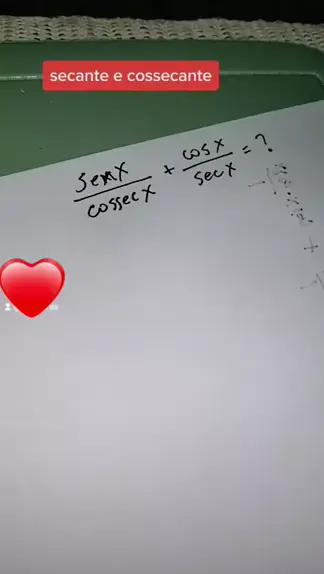 secante e cossecante
senx/cossecx + cosx/secx = ?